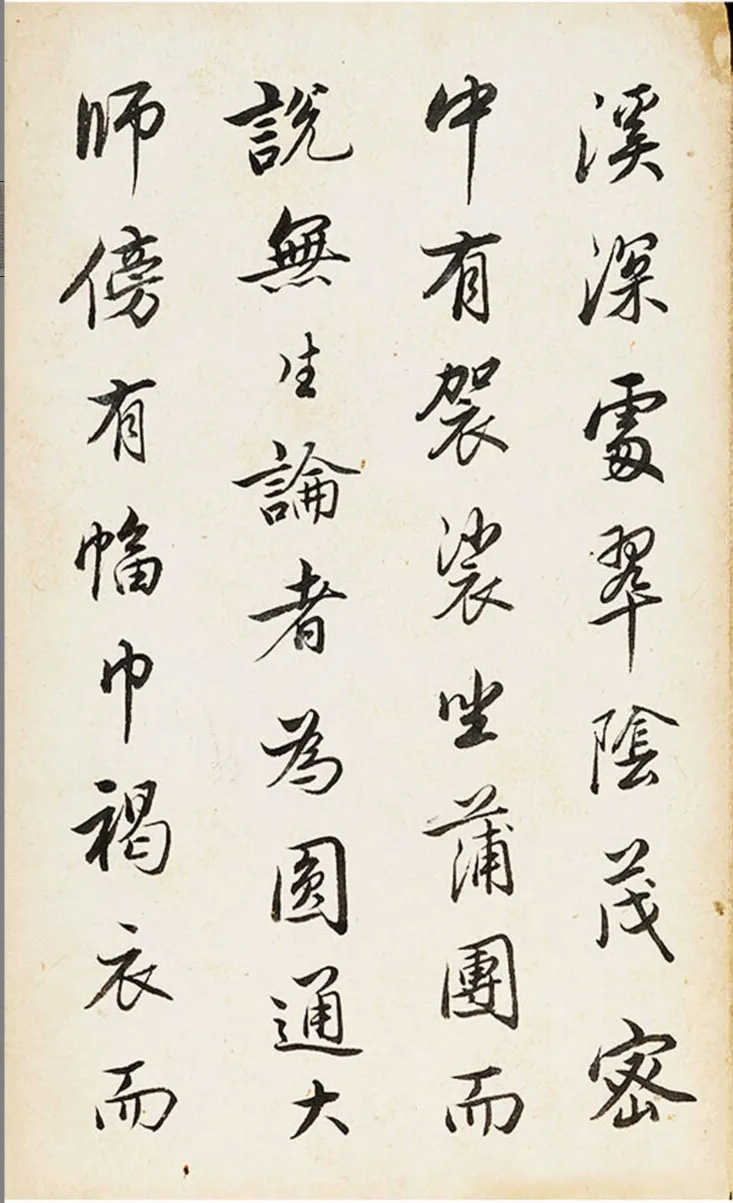 溪深處翠陰茂密
中有袈裟坐蒲團而
說無生論者為圓通大
師傍有幅巾褐衣而